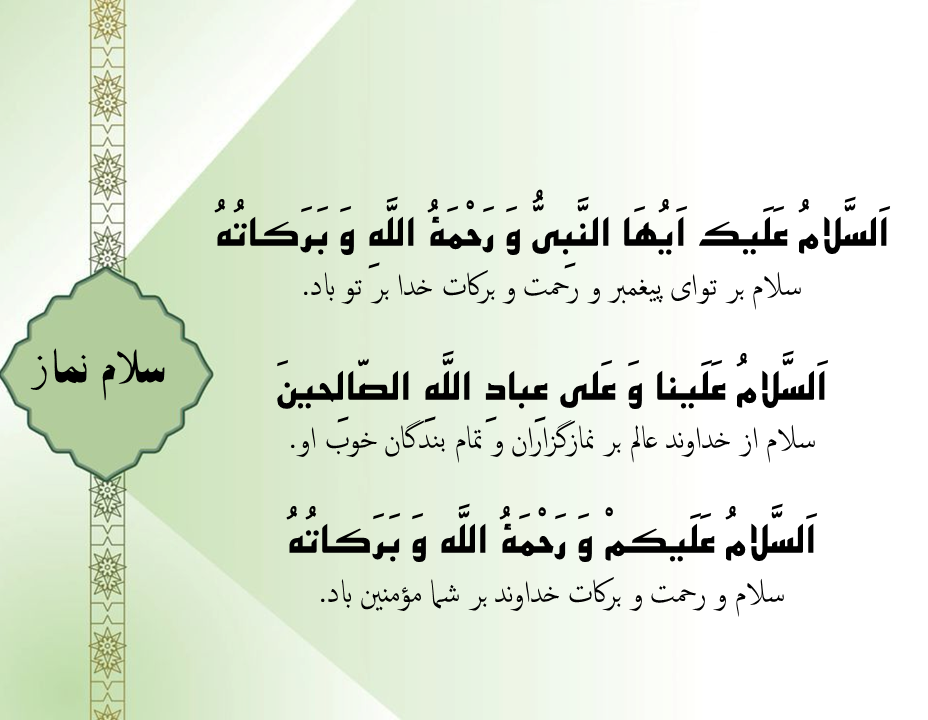 اَلسَّلامُ عَلَیک اَیُهَا النَّبِیُّ وَ رَحْمَهُٔ اللَّهِ وَ بَرَکاتُهُ
سلام بر توای پیغمبر و رحمت و برکات خدا بر تو باد.
اَلسَّلامُ عَلَینا وَ عَلی عبادِ اللَّهِ الصّالِحینَ
سلام از خداوند عالم بر نمازگزاران و تمام بندگان خوب او.
اَلسَّلامُ عَلَیکمْ وَ رَحْمَهُٔ اللَّه وَ بَرَکاتُهُ
سلام و رحمت و برکات خداوند بر شما مؤمنین باد.
سلام نماز